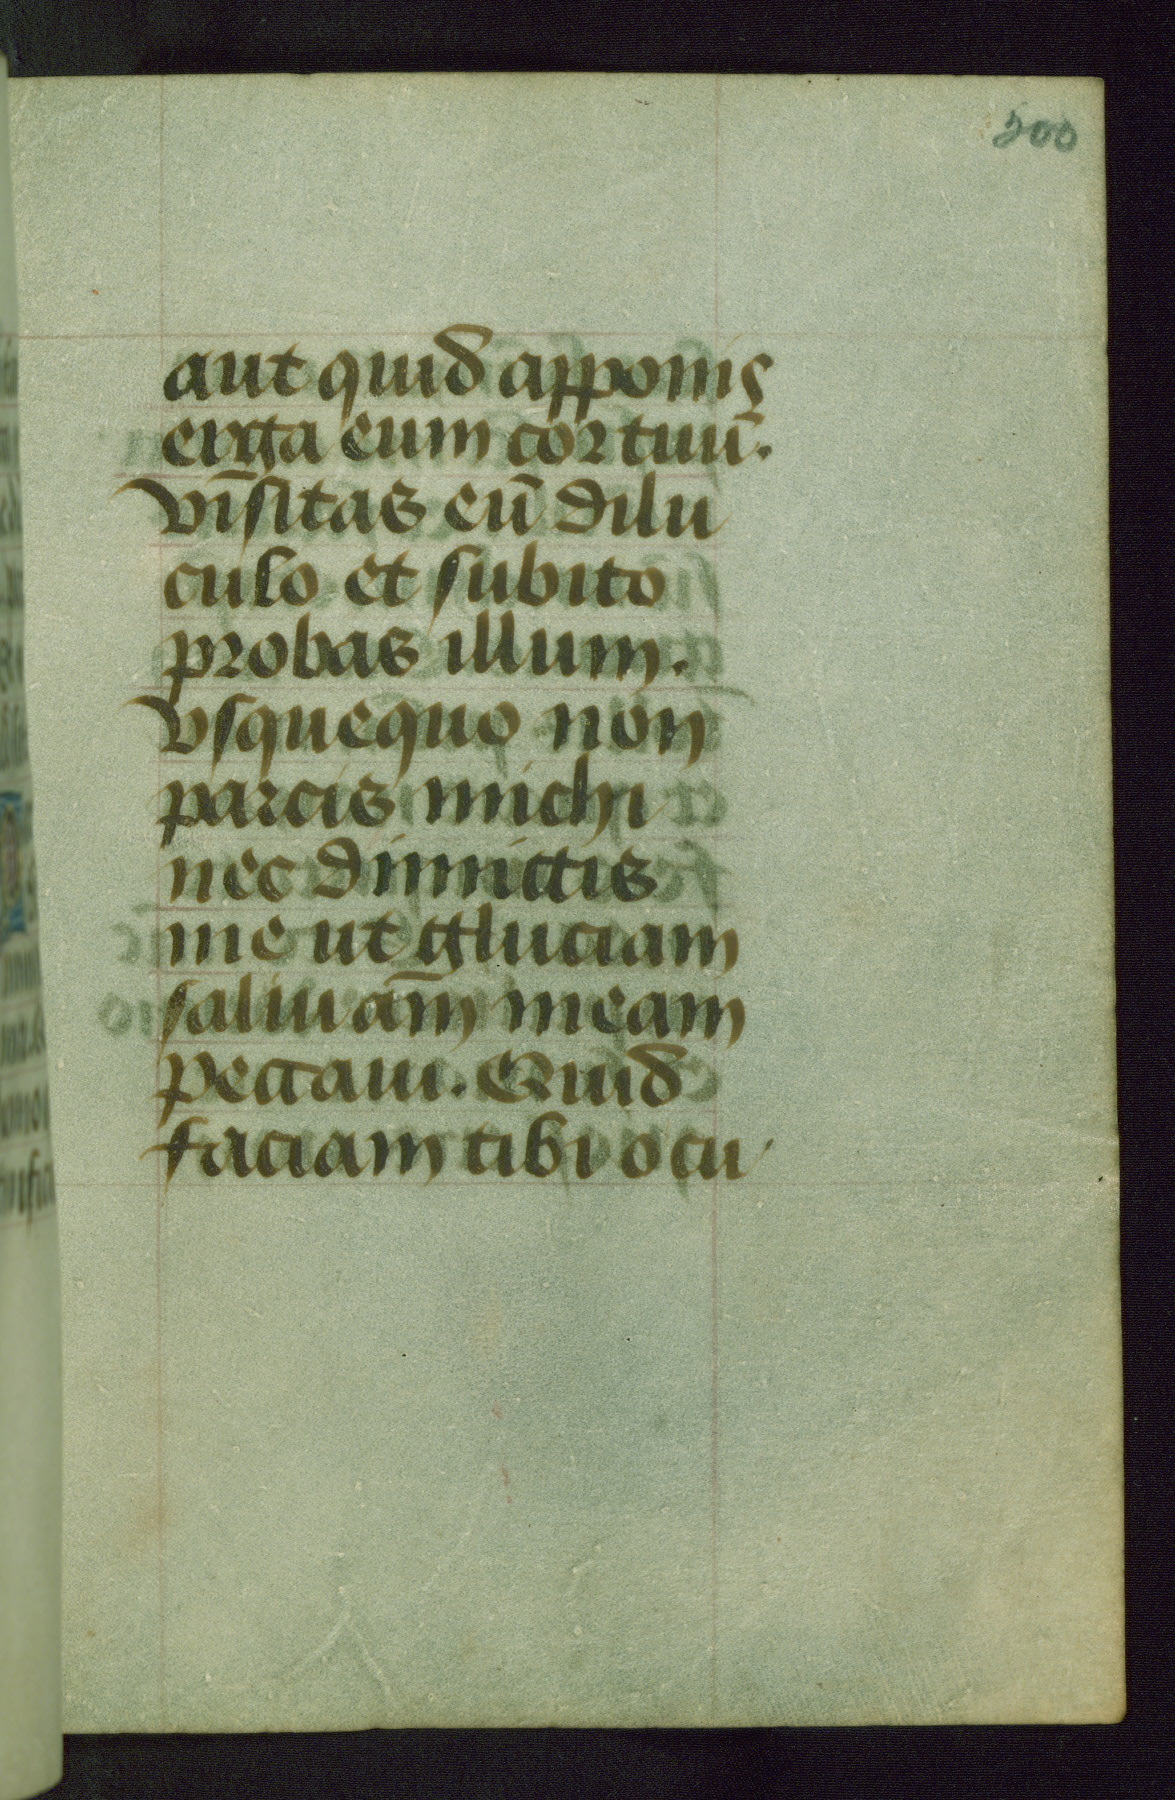 200
aut quid apponis
erga eum cor tuū.
Visitas eū dilu
culo et subito
probas illum.
Vsquequo non
parcis michi
nec dimittis
me ut gluciam
saliuam meam
peccaui. Quid
faciam tibi o cu